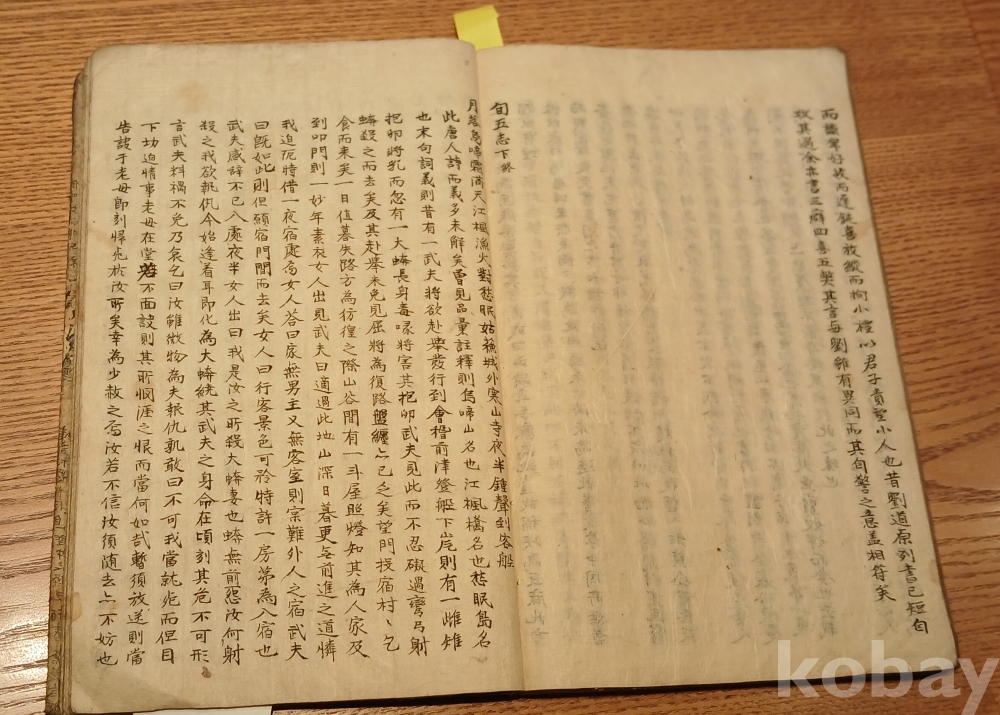 而讒聲好訐而違鈍喜放縱而拘小禮以君子責望小人也昔劉道原列書已短自
攻其過余亦書三病四喜五樂其言每劉雖有異同而其自警之意盖相符矣
旬五志下終
月落烏啼霜滿天江楓漁火對愁眠姑蘇城外寒山寺夜半鍾聲到客船
此唐人詩而義多未解矣曾見品彙註釋則烏啼山名也江楓橋名也愁眠島名
也末句詞義則昔有一武夫將欲赴擧發行到會稽前津登船下岸則有一雌雉
抱卵將乳而忽有一大蟒長身毒喙將害其抱卵武夫見此而不忍礙過彎弓射
蟒殺之而去矣及其赴擧未免見屈將為復路盤纏亦已乏矣望門投宿村村乞
食而來矣一日值暮失路方為彷徨之際山谷間有一斗屋照燈知其為人家及
到叩門則一妙年素衣女人出見武夫曰適過此地山深日暮更無前進之道憐
我迫厄特借一夜宿處為女人答曰家無男主又無客室則宗難外人之宿武夫
曰旣如此則但願宿門閭而去矣女人曰行客景色可矜特許一房第為入宿也
武夫感辞不已入處夜半女人出曰我是汝之所殺大蟒妻也蟒無前怨汝何射
殺之我欲執仇今始逢着耳即化為大蟒繞其武夫之身命在頃刻其危不可形
言武夫料禍不免乃哀乞曰汝雖微物為夫報仇孰敢曰不可我當就死而但目
下切迫情事老母在堂若不面訣則其所惘涯之恨而當何如哉暫須放送則當
告訣于老母即刻歸死於汝所矣幸為少赦之焉汝若不信汝須随去亦不妨也
kobay